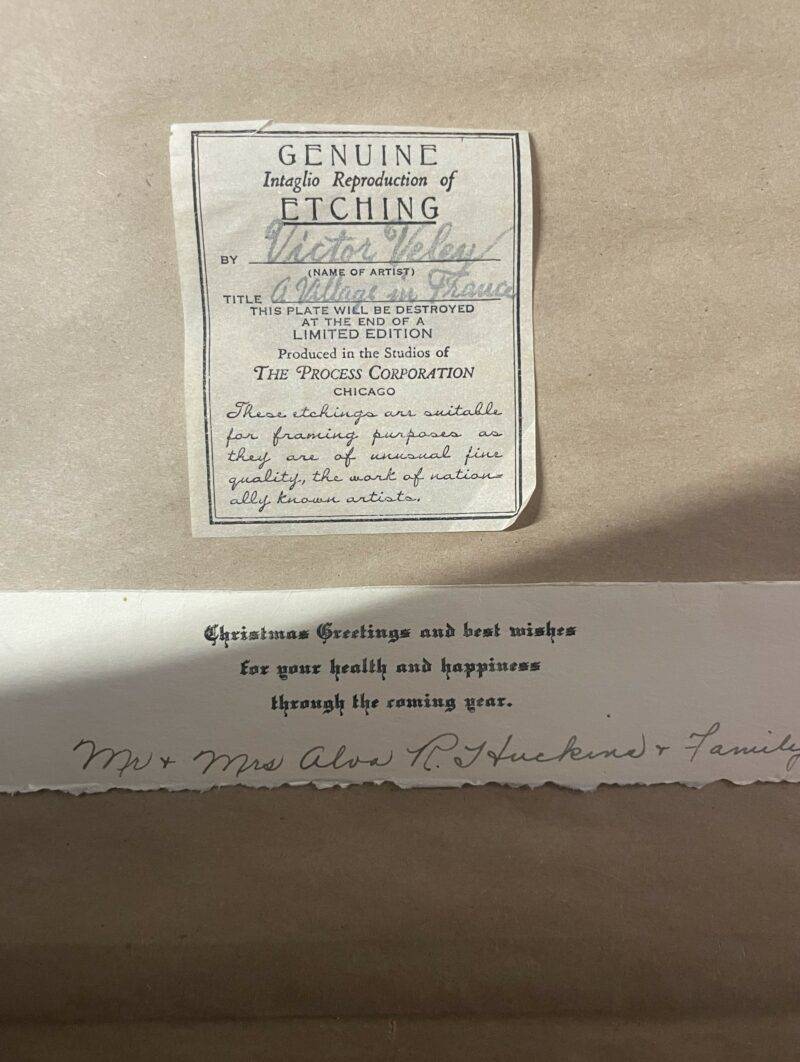 GENUINE
Intaglio Reproduction of
ETCHING
BY Victor Veley
(NAME OF ARTIST)
TITLE A Village in France
THIS PLATE WILL BE DESTROYED
AT THE END OF A
LIMITED EDITION
Produced in the Studios of
THE PROCESS CORPORATION
CHICAGO
These etchings are suitable
for framing purposes as
they are of unusual fine
quality, the work of nation=
ally known artists.
Christmas Greetings and best wishes
for your health and happiness
through the coming year.
Mr + Mrs Alva R. Huckins + Family